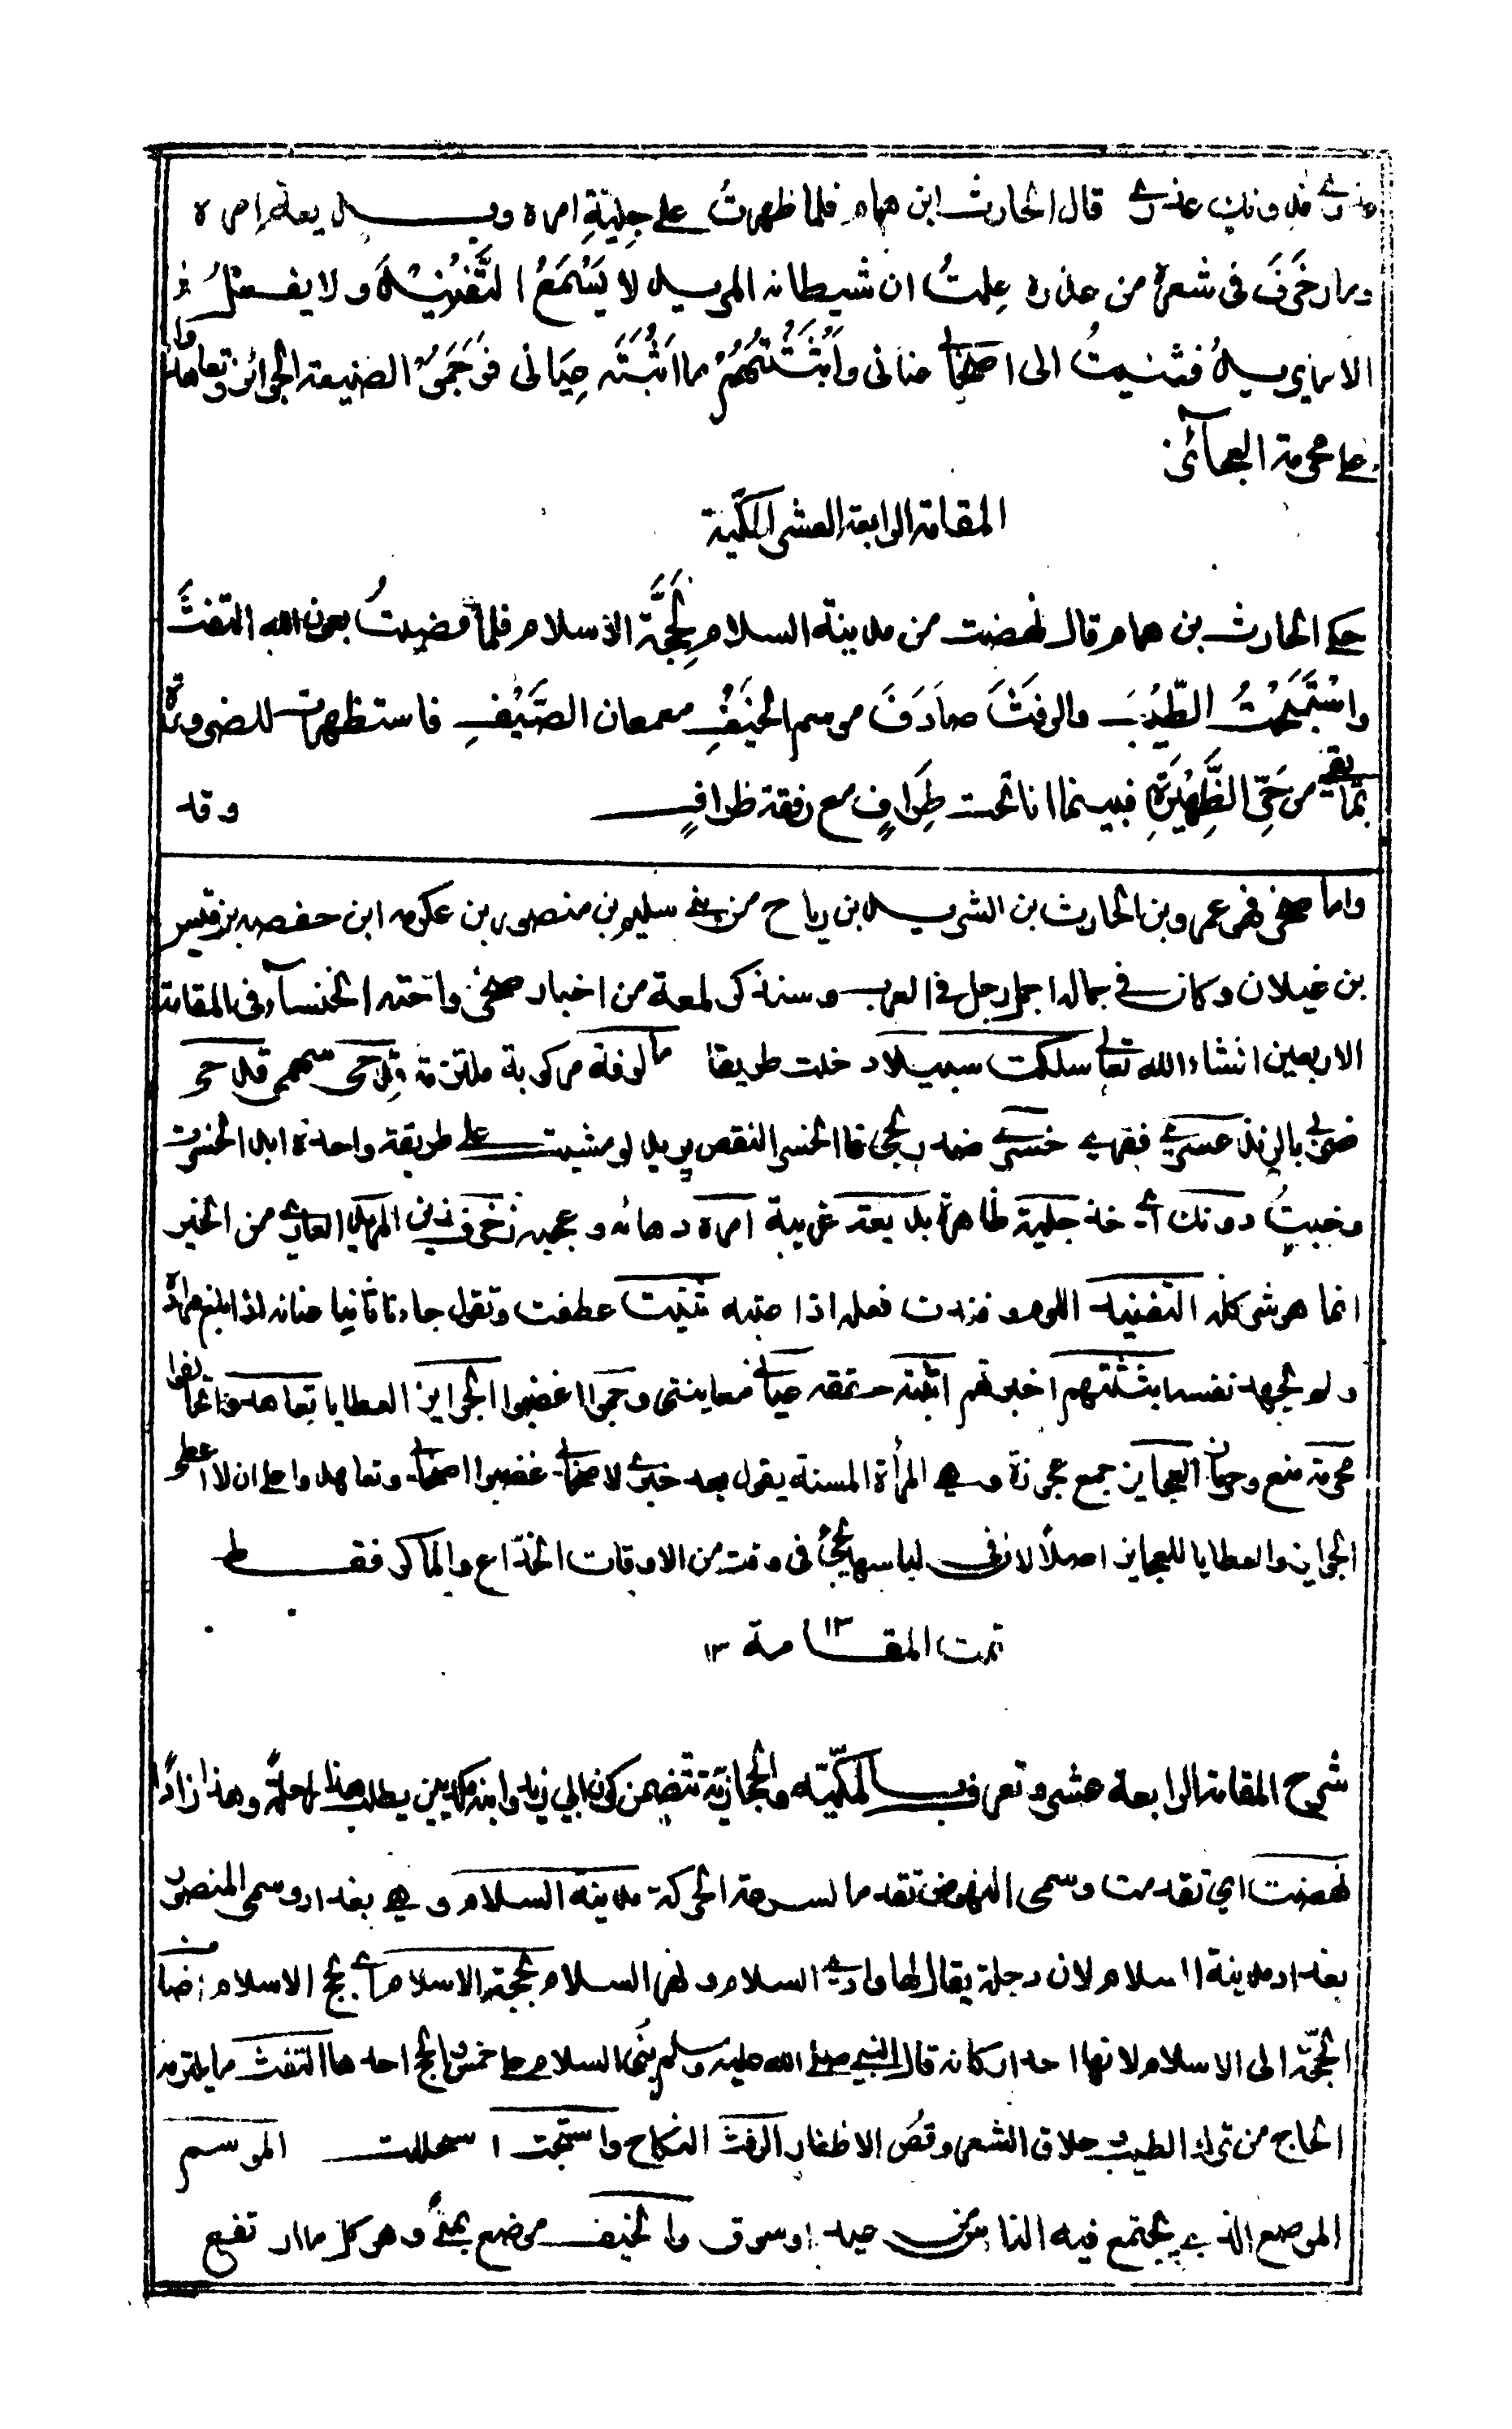 عذري فدونك عذري قال الحارث ابن همام فلما ظهرتُ على جِليّةِ امره وبديعة إمره
وما زخرَفَ في شعره من عذره عِلمتُ ان شيطانه المريد لا يَسْمَعُ التَّفنِيْدَ ولا يفعلُ
الا ما يريدُ فثنيتُ الى اصحابي عناني وَاَبْثَثْتُهُمْ ما اَثْبَتَه عِيَاني فَوَجَمَوُا لضيعة الجوائز وتعاهدوا
على محرمة العجائز
المقامة الرابعة العشر المكّية
حكى الحارث بن همام قال نهضت من مدينة السلام لِحَجَّة الاسلام فلما قضيتُ بعون الله التفثَ
واسْتَبَحْتُ الطّيْبَ والرفَثَ صادَفَ موسم الخَيْفِ معمعان الصَّيْفِ فاستظهرت للضرورة
بما يقي من حَرِّ الظَّهِيْرَةِ فبينما انا تحت طِرَافٍ مع رفقة ظرافٍ وقد
واما صخر فهو عمرو بن الحارث بن الشريد بن رياح من بني سليم بن منصور بن عكرمه ابن حفصه بن قيس
بن غيلان وكان في جماله اجمل رجل في العرب وسنذكر لمعة من اخبار صخر واخته الخنسآء في المقامة
الاربعين انشاء الله تعالى سلكت سبيلا دخلت طريقا مالوفة مركوبة ملتزمة قِدحي سهمي قدحي
ضربي بالزند عسري فقري خسري ضد ربحي فالخسر النقص يريد لو مشيت على طريقة واحدة ابدا لخسرت
وخبت دونك اي خذ جلية ظاهرة بديعة غريبة امره دهائه وعجبه زخرف زين المريد العاري من الخير
انما هو شر كله التفنيد اللوم وفندت فعله اذا عتبه ثنيت عطفت وتقول جاءنا ثانيا عنانه اذا بلغ مراده
ولم يجهد نفسه ابثثتهم اخبرتهم اثبته حققه عياني معاينتي وجموا غضبوا الجوايز العطايا تعاهدوا تحالفوا
محرمة منع وحرمان العجايز جمع عجوزة وهي المرأة المسنة يقول بعد خبري لاصحابي غضبوا اصحابي وتعاهدوا على ان لا اعطو
الجوايز والعطايا للعجايز اصلًا لان في لباسها يجئ في وقت من الاوقات الخدّاع والماكر فقط
تمت المقامة ١٣
شرح المقامة الرابعة عشر وتعرف بالمكّيّه والحجازيّة تتضمن كون ابي زيد وابنه مكديين يطلب هذا راحلةً وهذا زادًا
نهضت اي تقدمت وسمي النهوض تقدما لسرعة الحركة مدينة السلام وهي بغداد وسمى المنصور
بغداد مدينة السلام لان دجلة يقال لها وادي السلام ونهر السلام بحجة الاسلام اي بحج الاسلام اضاف
الحجّة الى الاسلام لانها احد اركانه قال النبي صلى الله عليه وسلم بُنِي السلام على خمس والحج احدها التفث ما يلتزمه
الحاج من ترك الطيب وحلاق الشعر وقصّ الاظفار الرفث النكاح واستبحت استحللت الموسم
الموضع الذي يجتمع فيه الناس من عيد اوسوق والخيف موضع بمنىً وهو كل ما ارتفع